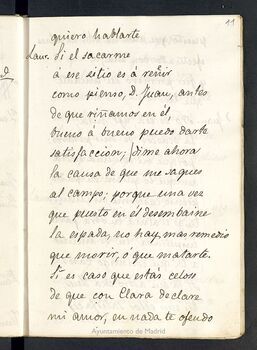 11
quiero hablarte
Laur. Si el sacarme
á ese sitio es á reñir
como pienso, D. Juan, antes
de que riñamos en él,
bueno á bueno puedo darte
satisfaccion; dime ahora
la causa de que me saques
al campo; porque una vez
que puesto en él desembaine
la espada, no hay mas remedio
que morir, ó que matarte.
Si es caso que estás celoso
de que con Clara declare
mi amor, en nada te ofendo
Ayuntamiento de Madrid